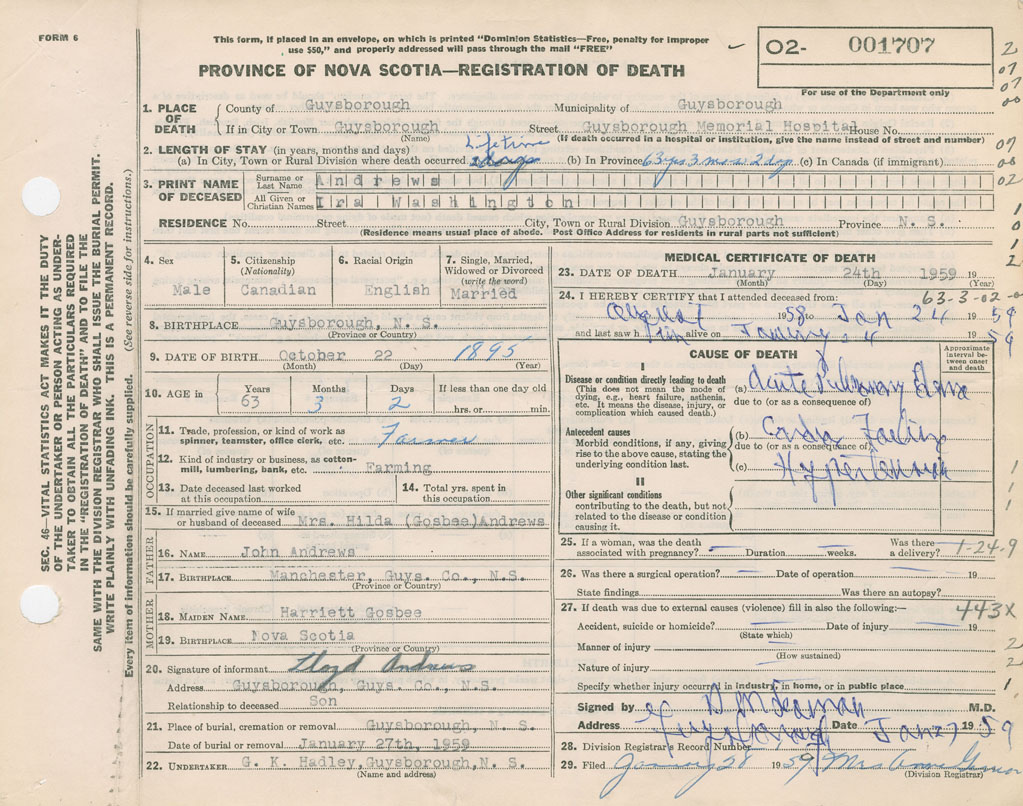 FORM 6
This form, if placed in an envelope, on which is printed "Dominion Statistics—Free, penalty for improper
use $50," and properly addressed will pass through the mail "FREE"
PROVINCE OF NOVA SCOTIA—REGISTRATION OF DEATH
02- 001707
For use of the Department only
2
07
07
00
07
00
02
1
0
1
2
SEC. 46—VITAL STATISTICS ACT MAKES IT THE DUTY
OF THE UNDERTAKER OR PERSON ACTING AS UNDER-
TAKER TO OBTAIN ALL THE PARTICULARS REQUIRED
IN THE "REGISTRATION OF DEATH" AND TO FILE THE
SAME WITH THE DIVISION REGISTRAR WHO SHALL ISSUE THE BURIAL PERMIT.
WRITE PLAINLY WITH UNFADING INK. THIS IS A PERMANENT RECORD.
Every item of information should be carefully supplied. (See reverse side for instructions.)
1. PLACE OF DEATH
County of Guysborough Municipality of Guysborough
If in City or Town Guysborough Street Guysborough Memorial Hospital House No.
(Name) (If death occurred in a hospital or institution, give the name instead of street and number)
2. LENGTH OF STAY (in years, months and days)
Lifetime
(a) In City, Town or Rural Division where death occurred 2 days (b) In Province 63 yrs 3 mos 2 dys (c) In Canada (if immigrant)
3. PRINT NAME OF DECEASED
Surname or Last Name Andrews
All Given or Christian Names Ira Washington
RESIDENCE No. Street City, Town or Rural Division Guysborough Province N. S.
(Residence means usual place of abode. Post Office Address for residents in rural parts not sufficient)
4. Sex 5. Citizenship (Nationality) 6. Racial Origin 7. Single, Married, Widowed or Divorced (write the word)
Male Canadian English Married
8. BIRTHPLACE Guysborough, N. S.
(Province or Country)
9. DATE OF BIRTH October 22 1895
(Month) (Day) (Year)
10. AGE in Years Months Days If less than one day old
63 3 2 hrs. or min.
OCCUPATION
11. Trade, profession, or kind of work as
spinner, teamster, office clerk, etc. Farmer
12. Kind of industry or business, as cotton-
mill, lumbering, bank, etc. Farming
13. Date deceased last worked
at this occupation
14. Total yrs. spent in
this occupation
15. If married give name of wife
or husband of deceased Mrs. Hilda (Gosbee) Andrews
FATHER
16. NAME John Andrews
17. BIRTHPLACE Manchester, Guys. Co., N.S.
(Province or Country)
MOTHER
18. MAIDEN NAME Harriett Gosbee
19. BIRTHPLACE Nova Scotia
(Province or Country)
20. Signature of informant Lloyd Andrews
Address Guysborough, Guys. Co., N.S.
Relationship to deceased Son
21. Place of burial, cremation or removal Guysborough, N. S.
Date of burial or removal January 27th, 1959
22. UNDERTAKER G. K. Hadley, Guysborough, N. S.
(Name and address)
MEDICAL CERTIFICATE OF DEATH
23. DATE OF DEATH January 24th 1959 19
(Month) (Day) (Year)
24. I HEREBY CERTIFY that I attended deceased from: 63-3-02-0
August 1958 to Jan 24 1959
and last saw him alive on January 24 1959
CAUSE OF DEATH
Approximate interval between onset and death
I
Disease or condition directly leading to death
(This does not mean the mode of
dying, e.g., heart failure, asthenia,
etc. It means the disease, injury, or
complication which caused death.)
(a) Acute Pulmonary Edema
due to (or as a consequence of)
Antecedent causes
Morbid conditions, if any, giving
rise to the above cause, stating the
underlying condition last.
(b) Cardiac Failure
due to (or as a consequence of)
(c) Hypertension
II
Other significant conditions
contributing to the death, but not
related to the disease or condition
causing it.
1
1
1
25. If a woman, was the death
associated with pregnancy? Duration weeks. Was there
a delivery? 1-24-9
26. Was there a surgical operation? Date of operation 19
State findings Was there an autopsy?
27. If death was due to external causes (violence) fill in also the following:— 443X
Accident, suicide or homicide? Date of injury 19
(State which)
Manner of injury 2
(How sustained)
Nature of injury 2
Specify whether injury occurred in industry, in home, or in public place 1
Signed by M.D.
Address Guysborough Date Jan 27 1959
28. Division Registrar's Record Number
29. Filed January 28 1959 Mrs Anne
(Division Registrar)